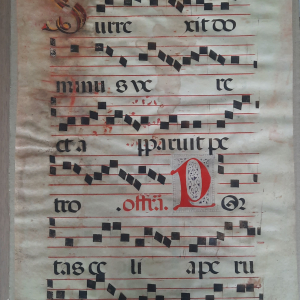 Surre xit do
minus ve re
et a pparuit pe
tro offia. P or
tas ce li ape ru